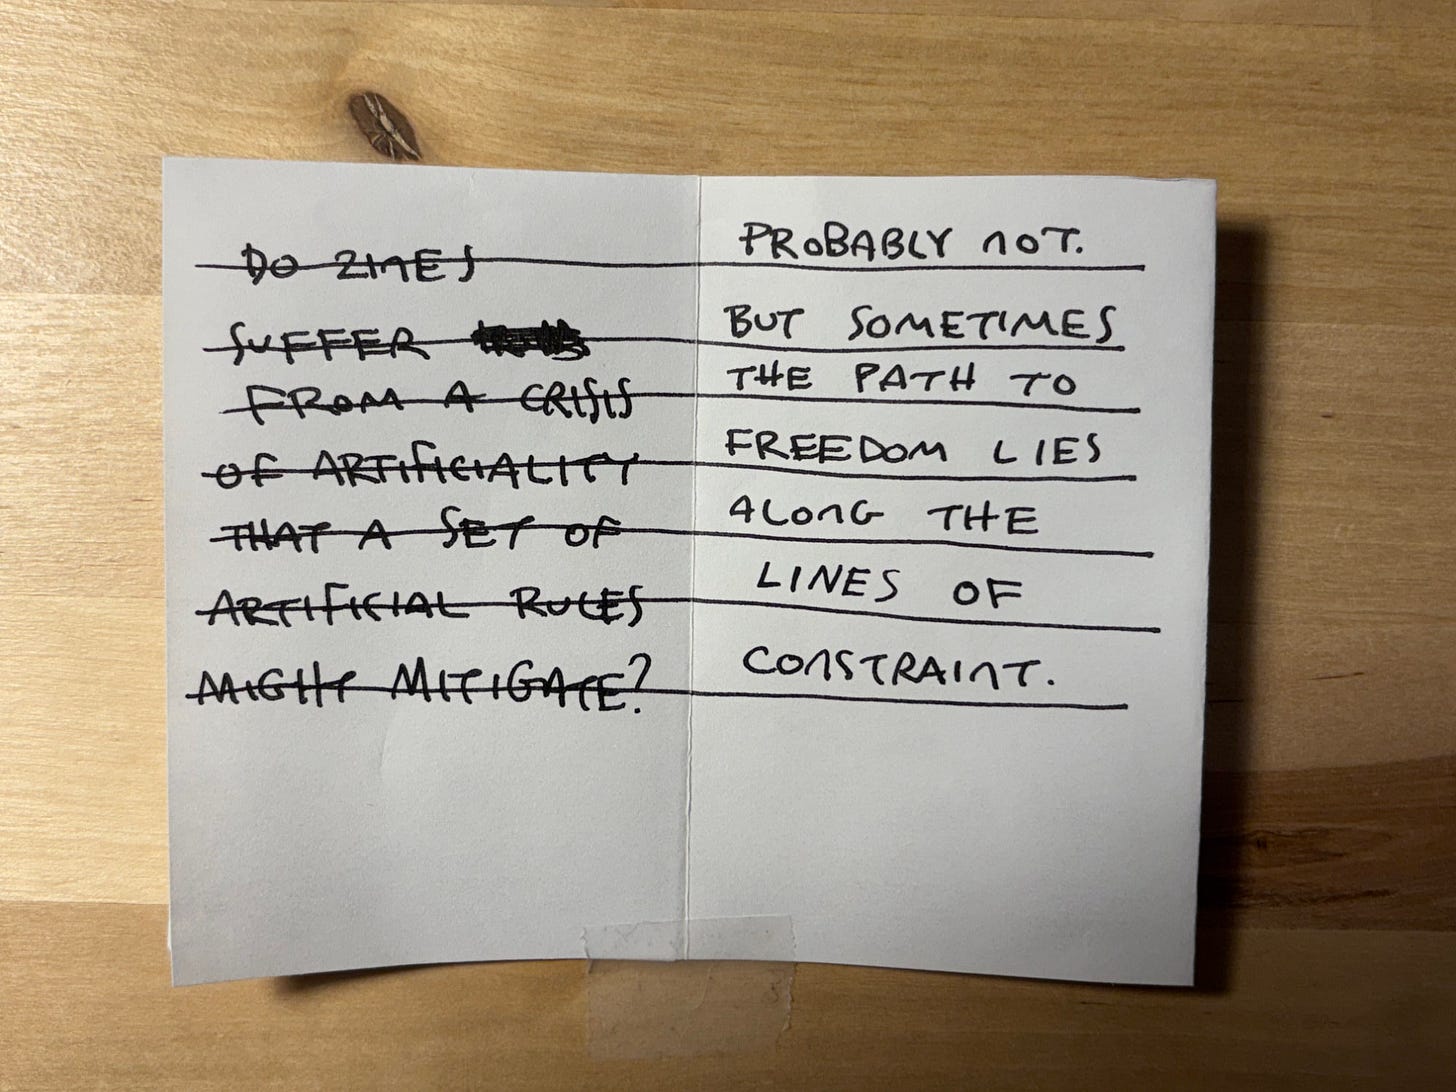 DO ZINES
SUFFER
FROM A CRISIS
OF ARTIFICIALITY
THAT A SET OF
ARTIFICIAL RULES
MIGHT MITIGATE?
PROBABLY NOT.
BUT SOMETIMES
THE PATH TO
FREEDOM LIES
ALONG THE
LINES OF
CONSTRAINT.